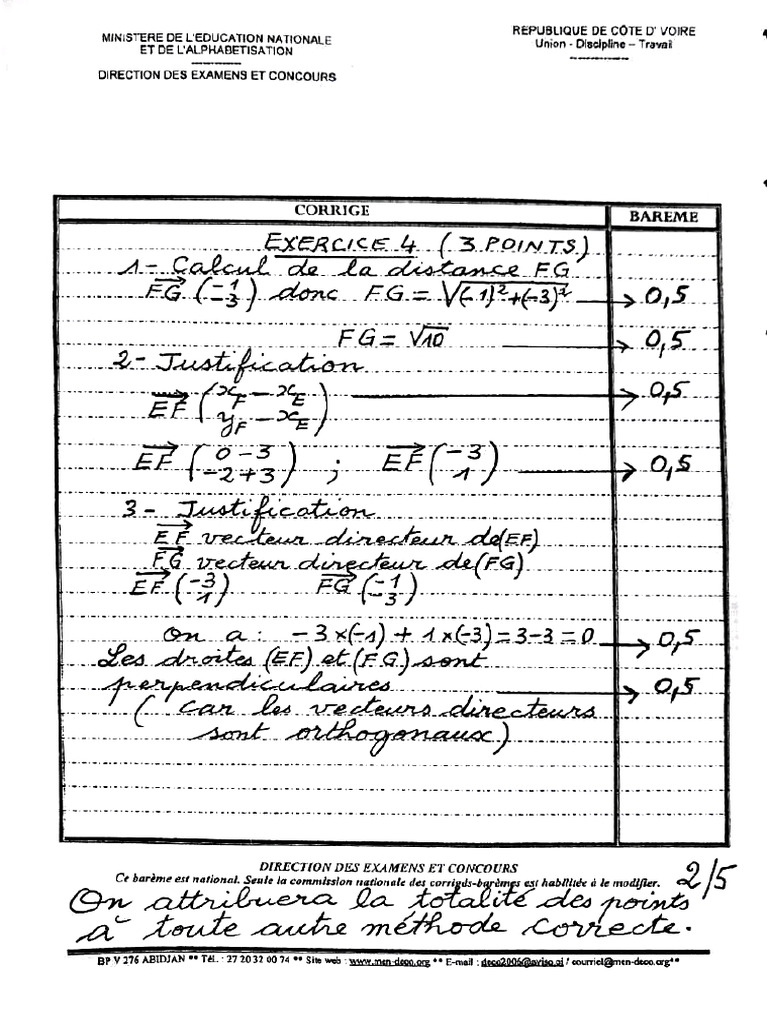 MINISTERE DE L'EDUCATION NATIONALE
ET DE L'ALPHABETISATION
DIRECTION DES EXAMENS ET CONCOURS
REPUBLIQUE DE CÔTE D' VOIRE
Union - Discipline – Travail
CORRIGE
BAREME
EXERCICE 4 ( 3 POINTS)
1- Calcul de la distance FG
$\overrightarrow{FG}\begin{pmatrix}-1\\-3\end{pmatrix}$ donc FG = $\sqrt{(-1)^2+(-3)^2}$ → 0,5
FG = $\sqrt{10}$ → 0,5
2- Justification
$\overrightarrow{EF}\begin{pmatrix}x_F - x_E\\y_F - x_E\end{pmatrix}$ → 0,5
$\overrightarrow{EF}\begin{pmatrix}0-3\\-2+3\end{pmatrix}$ ; $\overrightarrow{EF}\begin{pmatrix}-3\\1\end{pmatrix}$ → 0,5
3- Justification
$\overrightarrow{EF}$ vecteur directeur de (EF)
$\overrightarrow{FG}$ vecteur directeur de (FG)
$\overrightarrow{EF}\begin{pmatrix}-3\\1\end{pmatrix}$ $\overrightarrow{FG}\begin{pmatrix}-1\\-3\end{pmatrix}$
On a : -3×(-1) + 1×(-3) = 3-3 = 0 → 0,5
Les droites (EF) et (FG) sont
perpendiculaires → 0,5
( car les vecteurs directeurs
sont orthogonaux)
DIRECTION DES EXAMENS ET CONCOURS
Ce barème est national. Seule la commission nationale des corrigés-barèmes est habilitée à le modifier. 2/5
On attribuera la totalité des points
à toute autre méthode correcte.
BP V 276 ABIDJAN ** Tél. : 27 20 32 00 74 ** Site web : www.men-deco.org ** E-mail : deco2006@aviso.ci / courriel@men-deco.org**